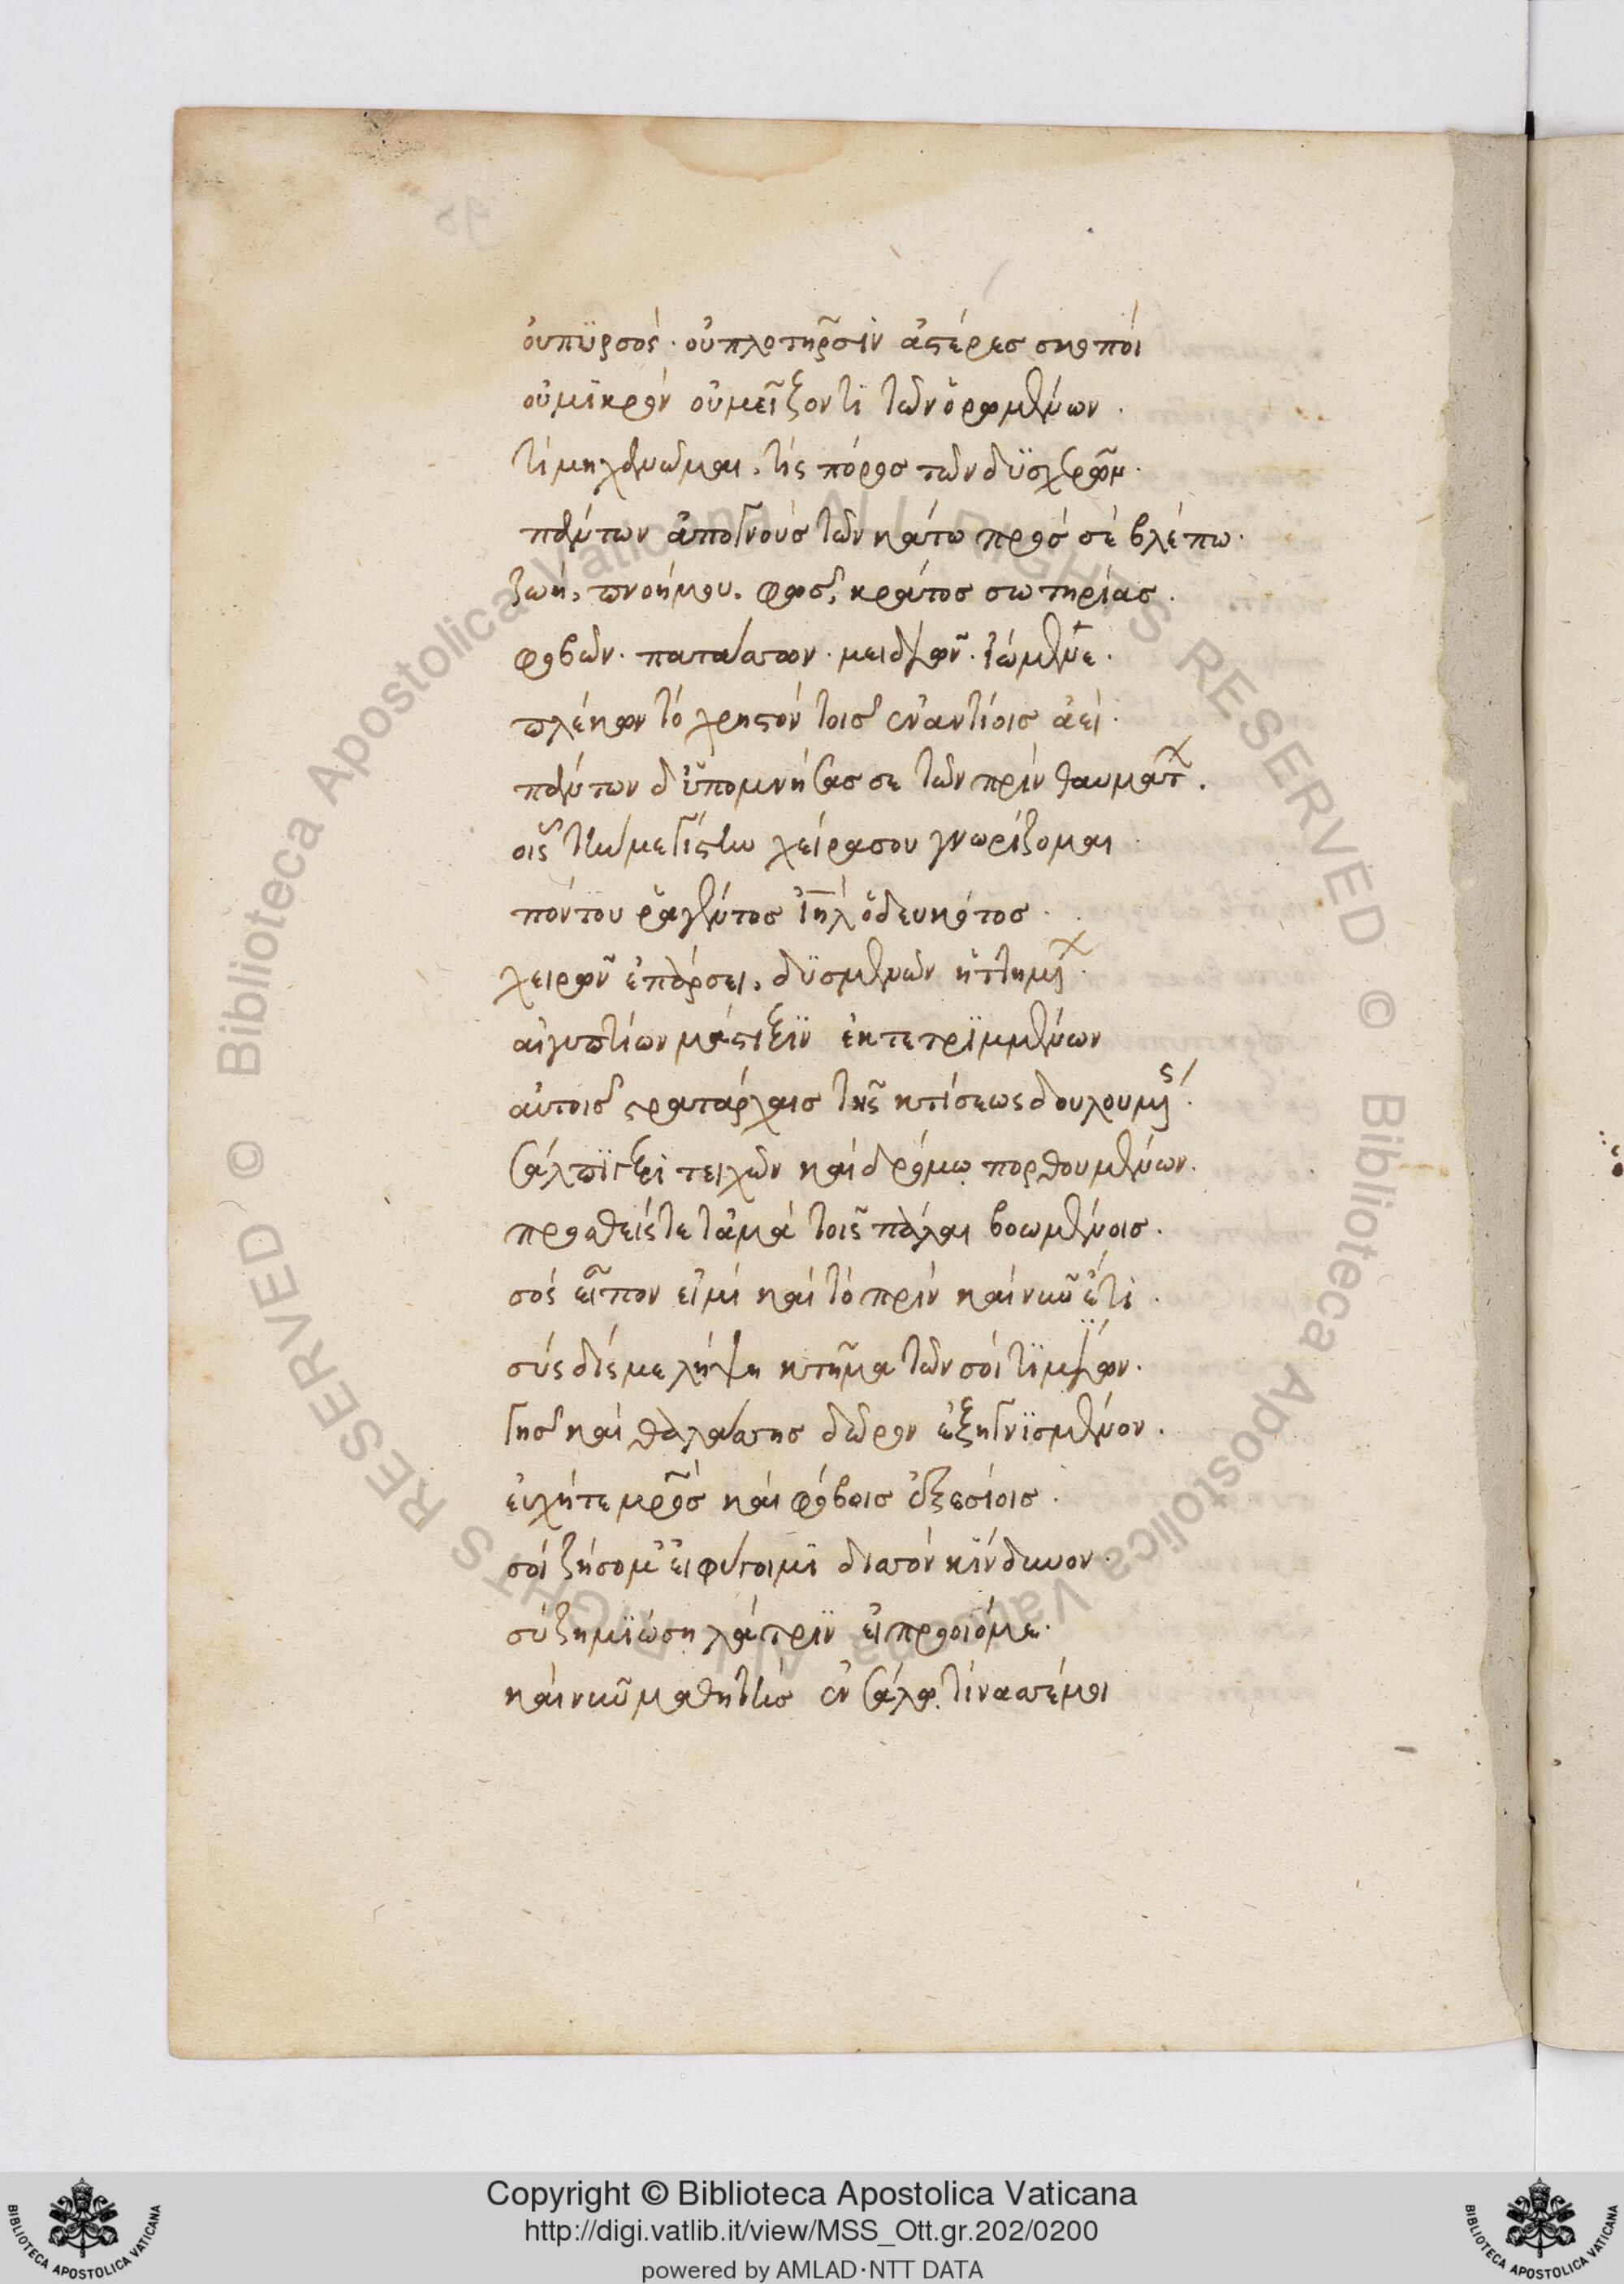 οὐ πυρσὸς· οὐ πλωτῆρσιν ἀστέρες σκοποὶ
οὐ μικρὸν οὐ μεῖζον τὶ τῶν ὁρωμένων.
τί μηχανῶμαι. τίς πόρος τῶν δυσχερῶν·
πάντων ἀπογνοὺς τῶν κάτω πρὸς σὲ βλέπω·
ζωὴ, πνοή μου. φῶς, κράτος σωτηρίας.
φοβῶν· πατάσσων· μειδιῶν· ἰώμενε.
πλέκων τὸ χρηστὸν τοῖς ἐναντίοις ἀεί·
πάντων δ' ὑπομνήσας σε τῶν πρὶν θαυμάτ
οἷς τὴν μεγίστην χεῖρα σου γνωρίζομαι
πόντου ῥαγέντος ἰηλ ὁδευκότος·
χειρῶν ἐπάρσει, δυσμενῶν
αἰγυπτίων μάστιξιν ἐκτετριμμένων
αὐτοῖς στρατάρχαις τῆς κτίσεως δουλουμ
σάλπιγξι τειχῶν καὶ δρόμῳ πορθουμένων.
προσθείς τε τἀμὰ τοῖς πάλαι βοωμένοις.
σὸς εἶπον εἰμὶ καὶ τὸ πρὶν καὶ νῦν ἔτι.
σὺ δίς με λήψη κτῆμα τῶν σοὶ τιμίων·
γῆς καὶ θαλάσσης δῶρον ἐξηγνισμένον.
εὐχῆς τε μρὸς καὶ φόβοις ἐξεσίοις·
σοὶ ζήσομ' εἰ φύγοιμι δισσὸν κίνδυνον·
σὺ ζημιώσῃ λάτριν εἰ προοῖό με·
καὶ νῦν μαθητὴς ἐν σάλῳ. τίνασσέ μοι